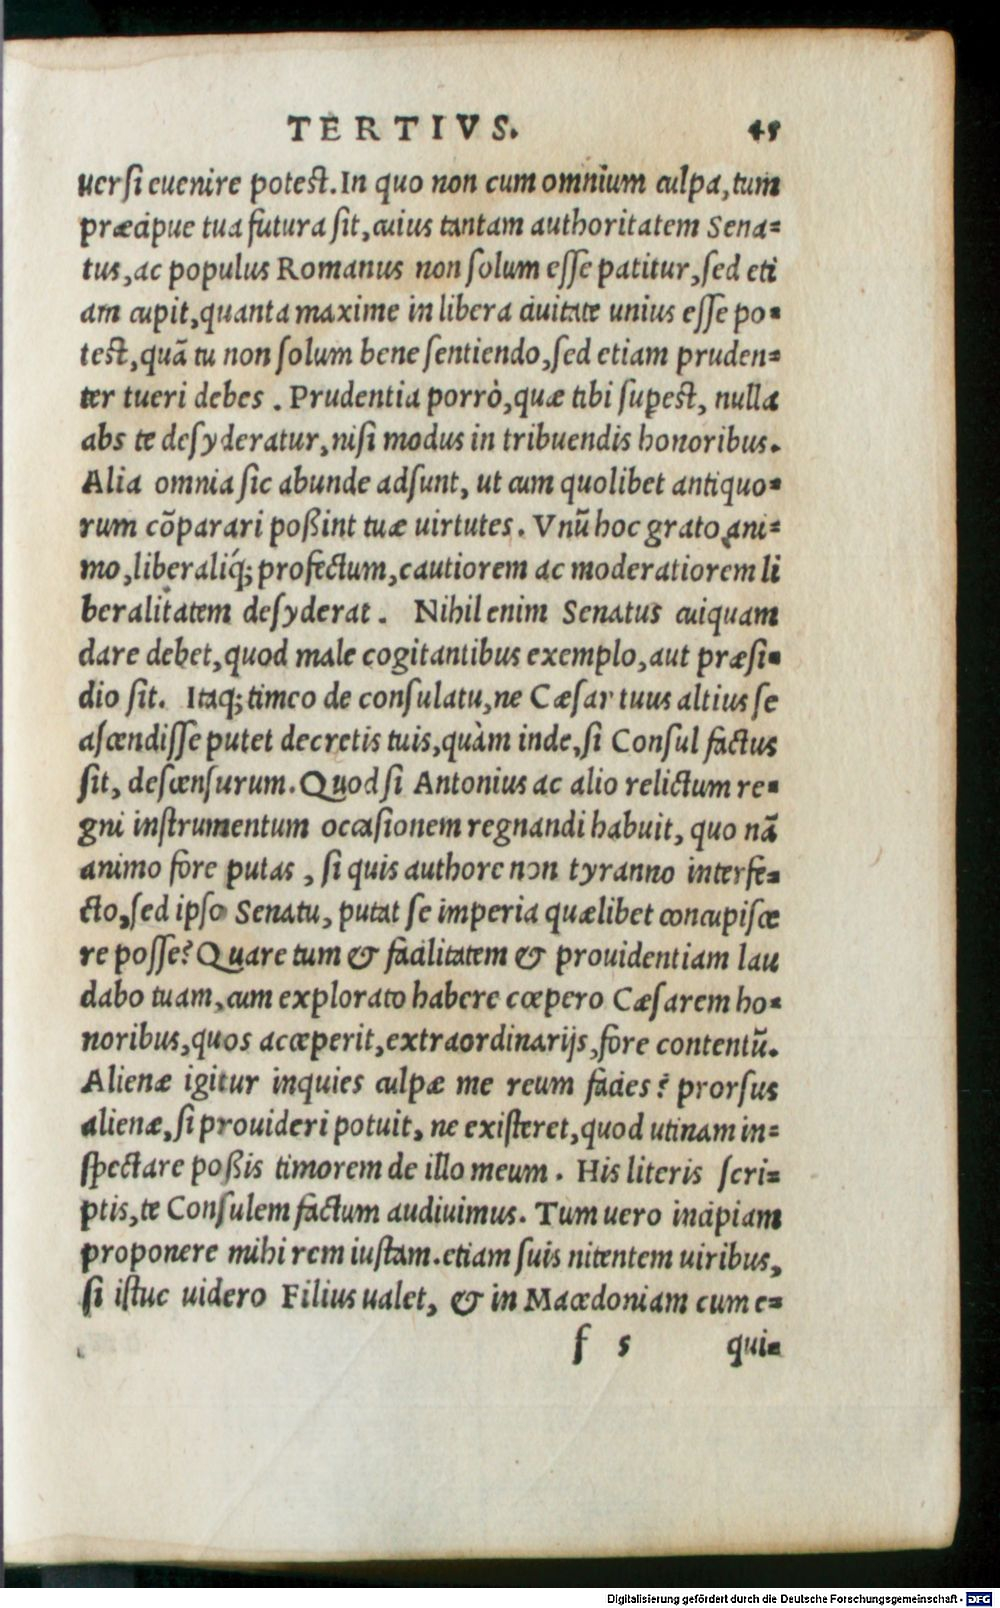 TERTIVS. 45
uersi euenire potest. In quo non cum omnium culpa, tum
præcipue tua futura sit, cuius tantam authoritatem Sena-
tus, ac populus Romanus non solum esse patitur, sed eti
am cupit, quanta maxime in libera ciuitate unius esse po-
test, quā tu non solum bene sentiendo, sed etiam pruden-
ter tueri debes. Prudentia porrò, quæ tibi sup̱est, nulla
abs te desyderatur, nisi modus in tribuendis honoribus.
Alia omnia sic abunde adsunt, ut cum quolibet antiquo-
rum cōparari poßint tuæ uirtutes. Vnū hoc grato ani-
mo, liberaliq́; profectum, cautiorem ac moderatiorem li
beralitatem desyderat. Nihil enim Senatus cuiquam
dare debet, quod male cogitantibus exemplo, aut præsi-
dio sit. Itaq; timeo de consulatu, ne Cæsar tuus altius se
ascendisse putet decretis tuis, quàm inde, si Consul factus
sit, descensurum. Quod si Antonius ac alio relictum re-
gni instrumentum occasionem regnandi habuit, quo nā
animo fore putas, si quis authore non tyranno interfe-
cto, sed ipso Senatu, putat se imperia quælibet concupisce
re posse? Quare tum & facilitatem & prouidentiam lau
dabo tuam, cum explorato habere cœpero Cæsarem ho-
noribus, quos acceperit, extraordinarijs, fore contentū.
Alienæ igitur inquies culpæ me reum facies? prorsus
alienæ, si prouideri potuit, ne existeret, quod utinam in-
spectare poßis timorem de illo meum. His literis scri-
ptis, te Consulem factum audiuimus. Tum uero incipiam
proponere mihi rem iustam. etiam suis nitentem uiribus,
si istuc uidero Filius ualet, & in Macedoniam cum e-
f 5 qui-
Digitalisierung gefördert durch die Deutsche Forschungsgemeinschaft - DFG